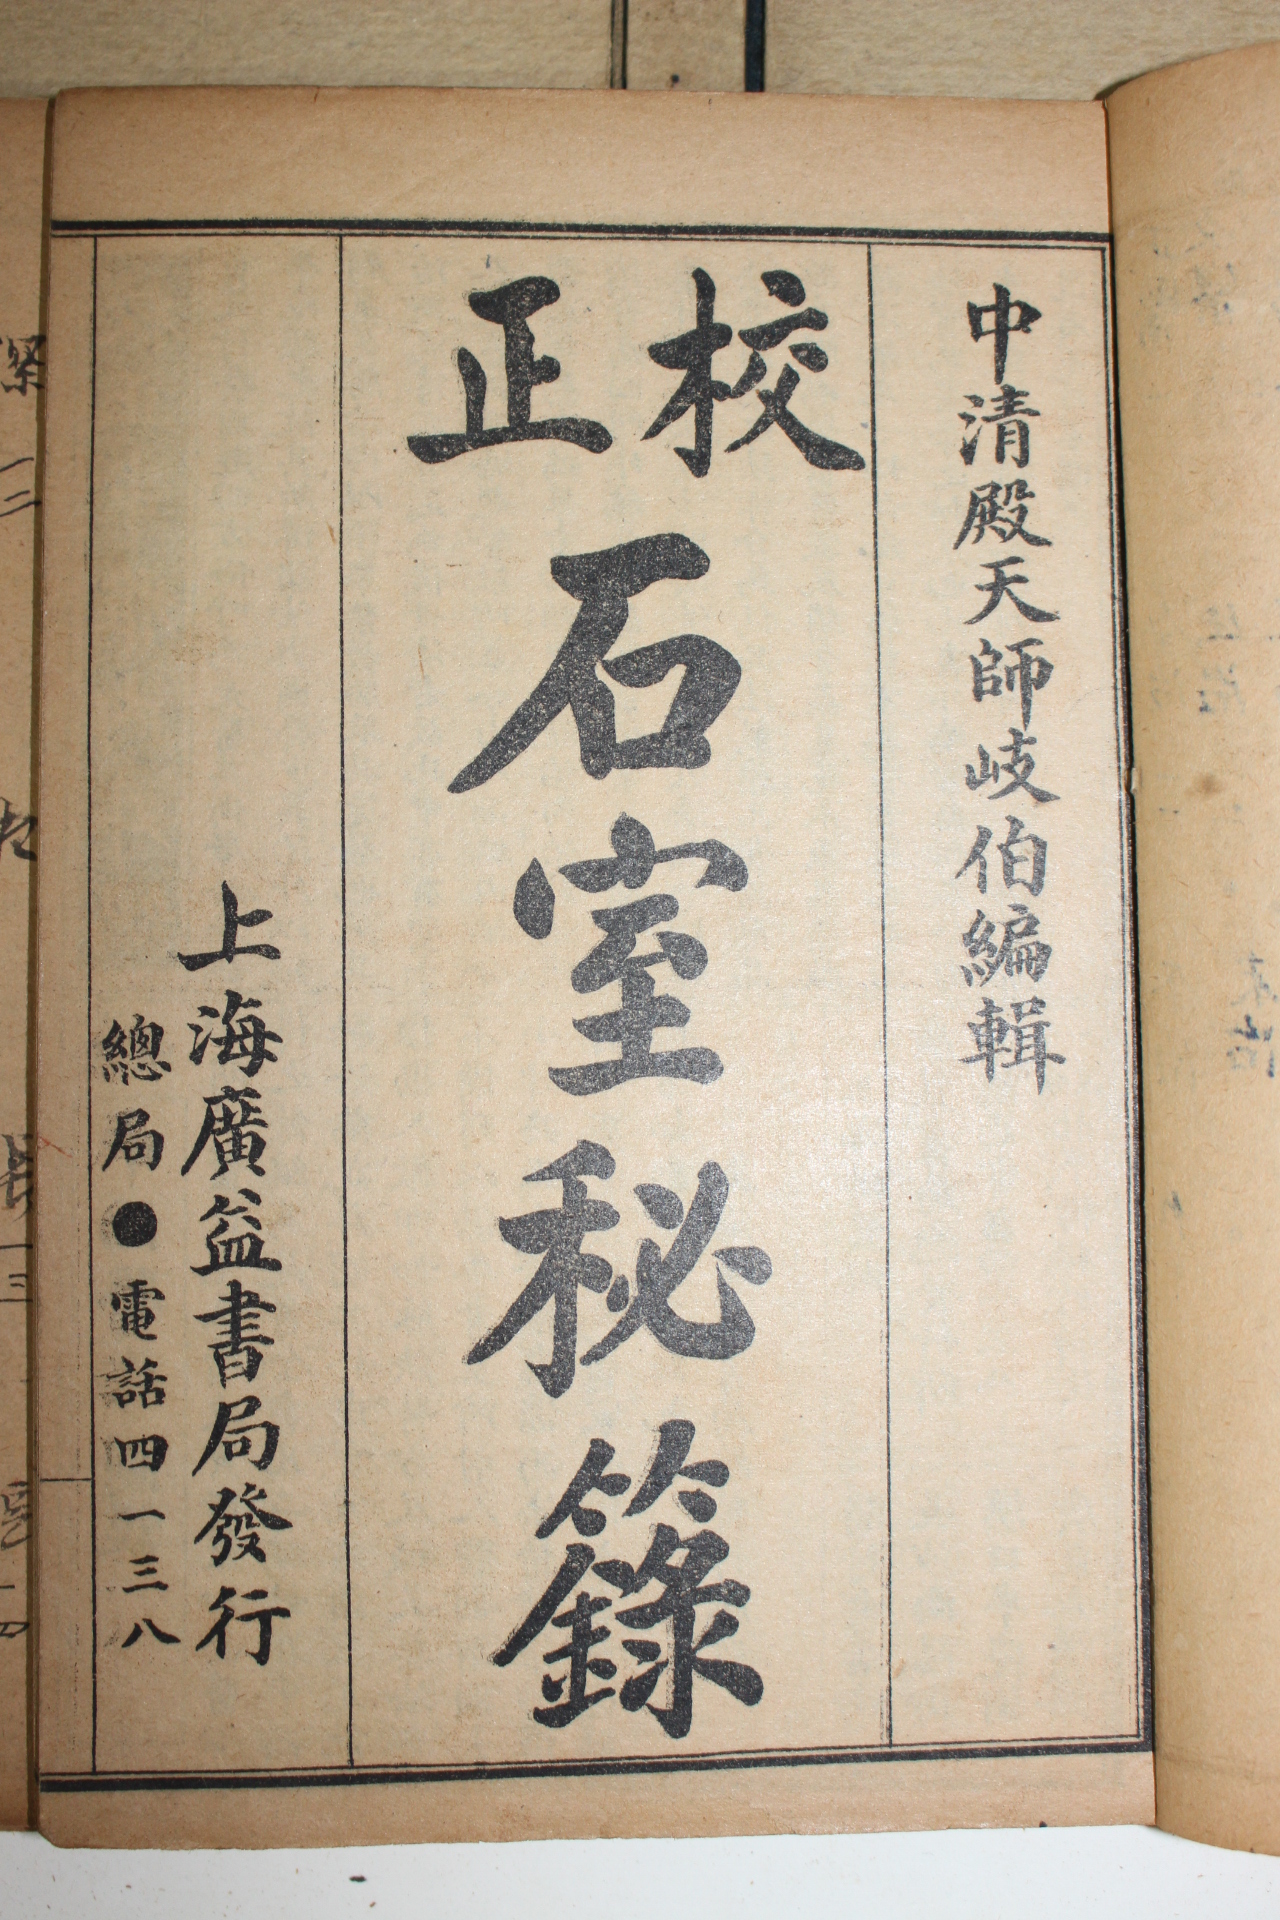 中清殿天師岐伯編輯
校正
石室秘籙
上海廣益書局發行
總局●電話四一三八